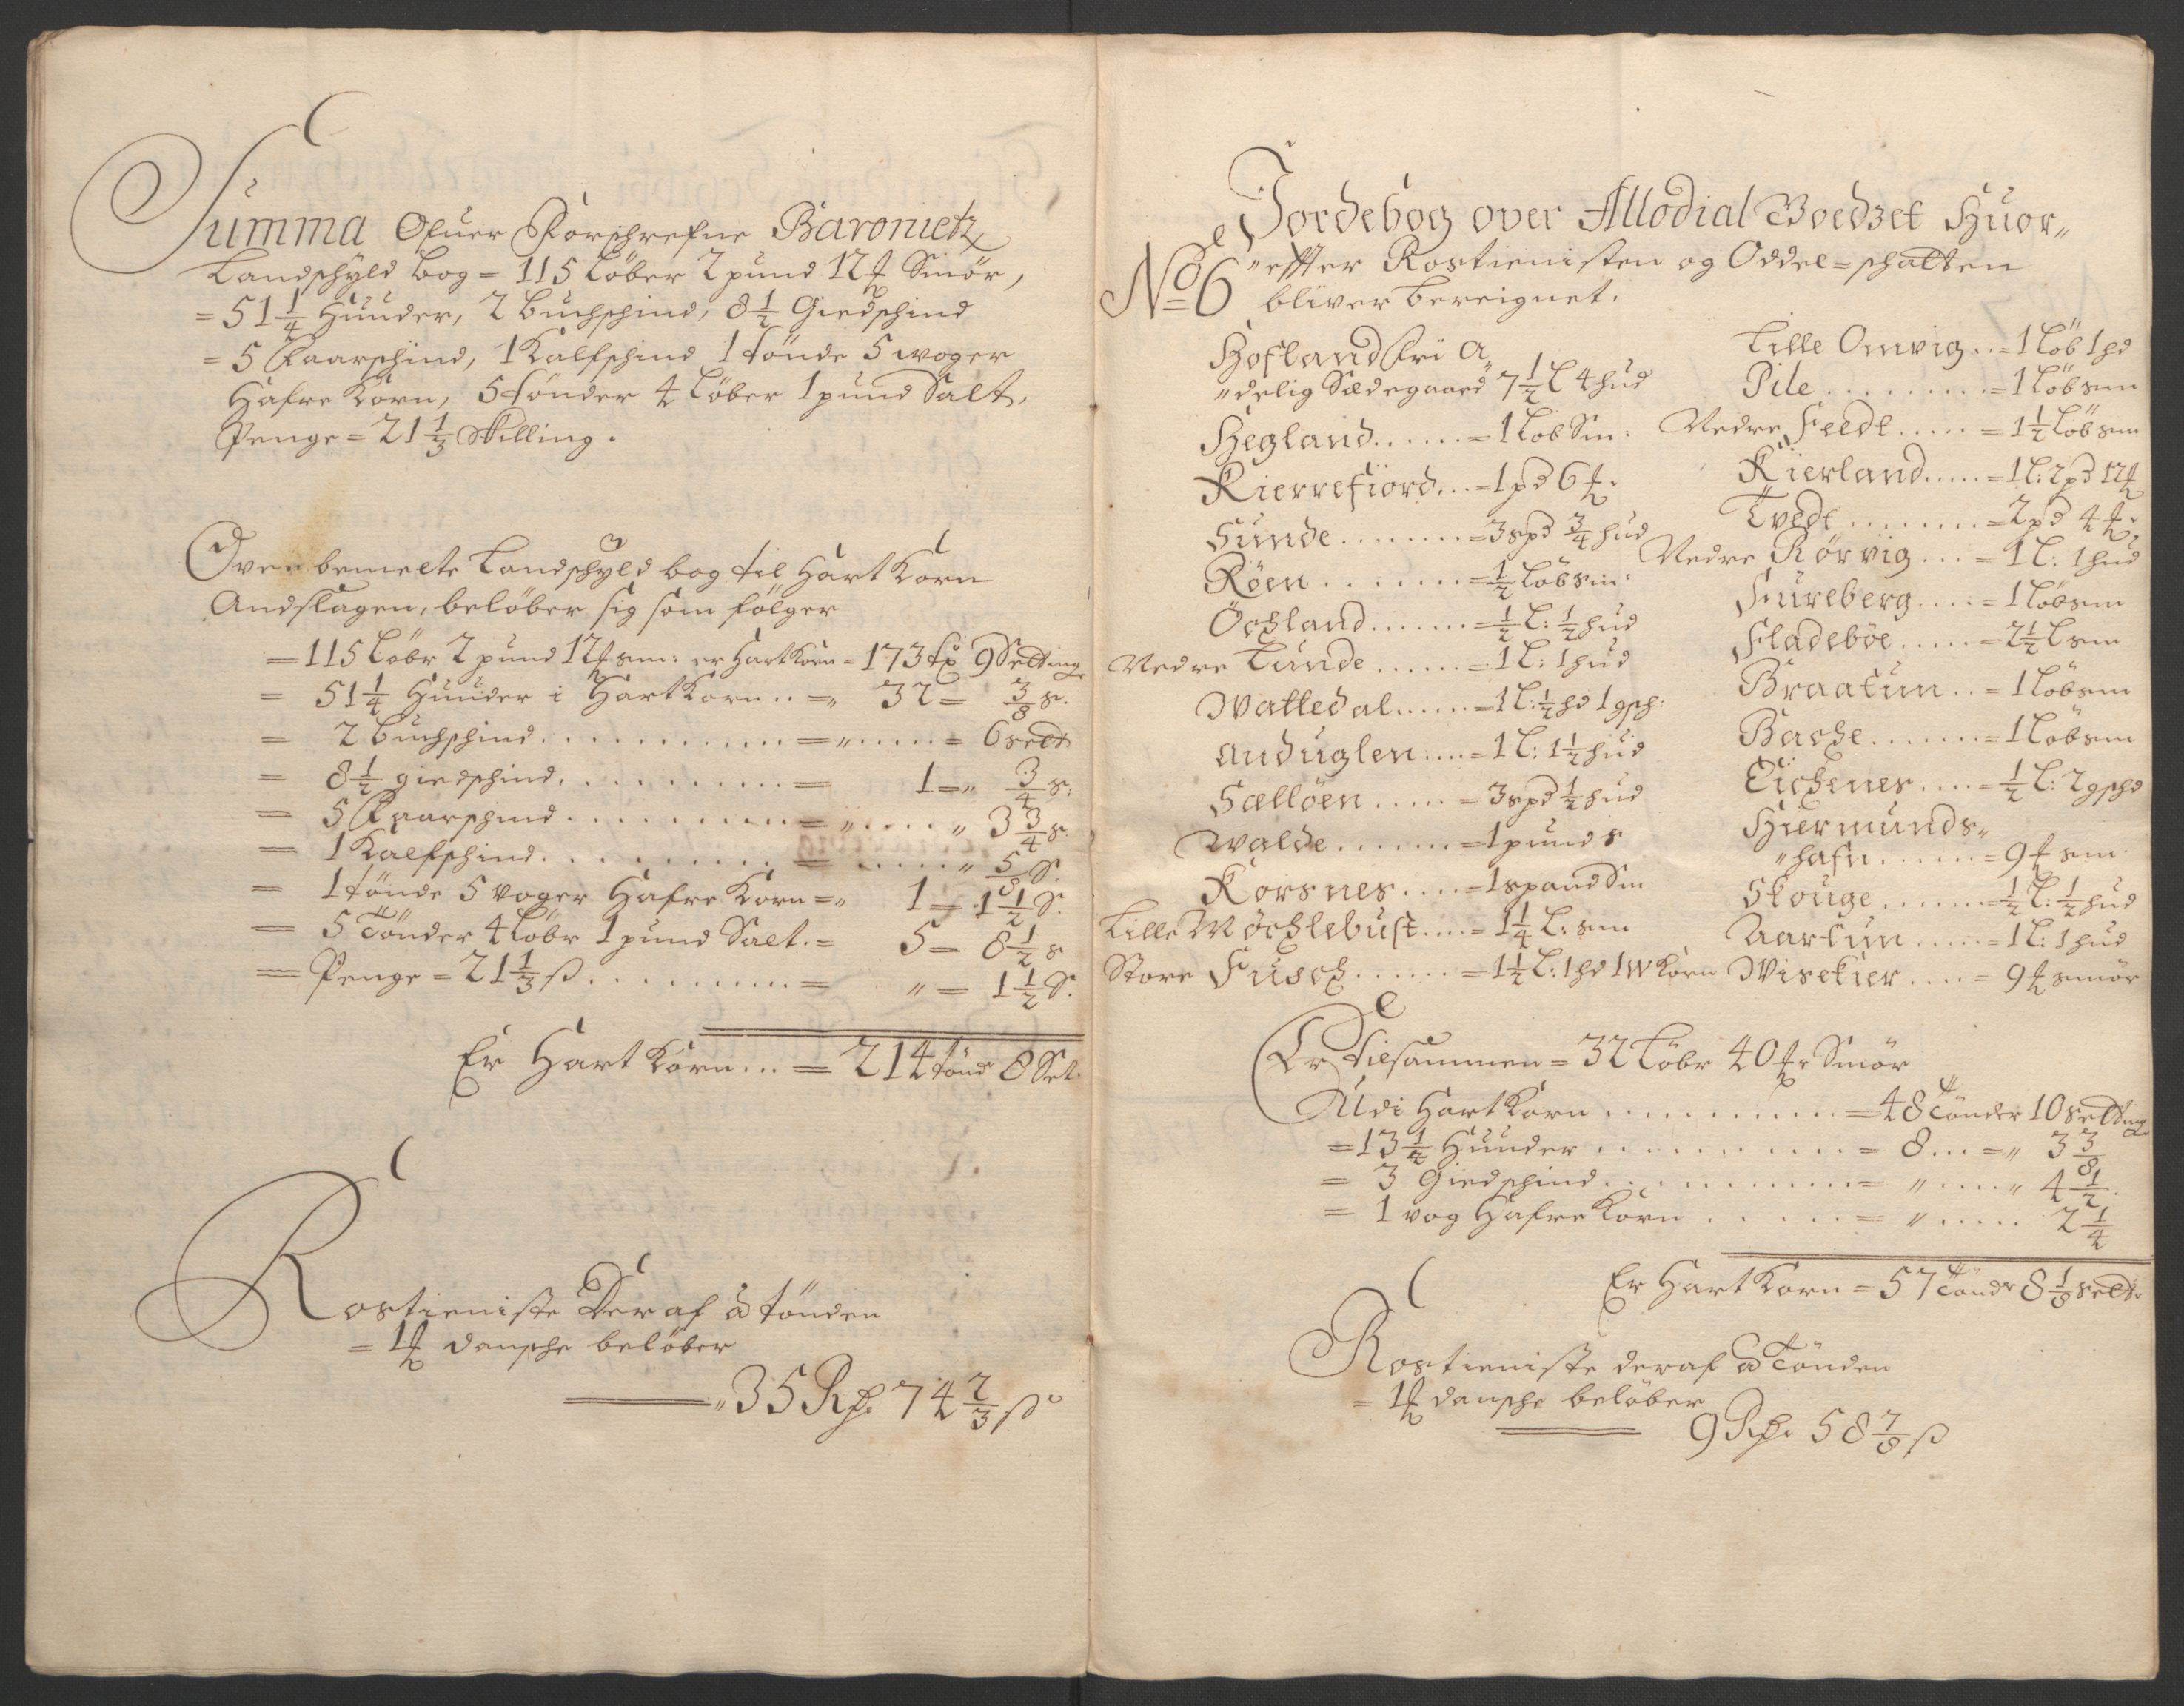 Summa Ofuer Forschrefne Baronietz
Landschyld bog = 115 Løber 2 pund 12 ℔ Smør,
= 51 1/4 Huuder, 2 buchschind, 8 1/2 Giedschind
= 5 Faarschind, 1 Kalfschind 1 tønde 5 woger
Hafre Korn, 5 tønder 4 Løber 1 pund Salt,
Penge = 21 1/3 Skilling.
Ovenbemelte Landschyld bog til Hart Korn
Andslagen, beløber sig som følger
= 115 Løbr 2 pund 12 ℔ sm: er HartKorn = 173 tr 9 Setting
= 51 1/4 Huuder i HartKorn .. = 32 = 3/8 s.
= 2 buchschind . . . . = " .... = 6 sett
= 8 1/2 giedschind . . . . = 1 = " 3/4 s:
= 5 Faarschind . . . . = " .... " 3 3/4 s
= 1 Kalfschind . . . . = ..... " 5/8 S.
= 1 tønde 5 voger Hafre Korn = " 1 = 1 1/2 S.
= 5 Tønder 4 Løbr 1 pund Salt. = 5 = 8 1/2 s
= Penge = 21 1/3 ß . . . . = " = 1 1/2 S.
Er Hart Korn ... = 214 tønd 8 Set.
Rostieniste Der af â tønden
= 1 ℔ dansche beløber
35 Rd. 74 2/3 ß
Jordebog over Allodial Goedzet Huor"
No 6 "effter Rostienisten og Oddel=schatten
bliver bereignet.
Hofland Fri A"
"delig Sædegaard 7 1/2 L 4 hud
Hegland ...... = 1 Løb Sm:
Kierrefiord ... = 1 pd 6 ℔.
Sunde ........ = 3 spd 3/4 hud
Røen ........ = 1/2 Løb sm:
Öchland ....... = 1/2 L: 1/2 hud
Nedre Lunde ...... = 1 L: 1 hud
Wattedal ...... = 1 L: 1/2 hd 1 gsch:
Anduglen .... = 1 L: 1 1/2 hud
Sælløen ..... = 3 spd 1/2 hud
Walde ....... = 1 pund s
Korsnes .... = 1 spand Sm
Lille Møchlebust .... = 1 1/4 L: sm
Store Fusch ...... = 1 1/2 L: 1 hd 1 W Korn
Lille Omvig .. = 1 Løb 1 hd
Pile ......... = 1 Løb sm
Nedre Feedt ..... = 1 1/2 Løb sm
Kierland ..... = 1 L: 2 pd 12 ℔
Tvedt ........ = 2 pd 4 ℔.
Nedre Rørvig .... = 1 L: 1 hud
Fureberg .... = 1 Løb sm
Fladebøe ..... = 2 1/2 L sm
Braatun .. = 1 Løb sm
Bache ....... = 1 Løb sm
Eichenes .... = 1/2 L: 2 gschd
Hiermunds"
"hafn ...... = 9 ℔ sm
Skouge ....... = 1/2 L: 1/2 hud
Aartun ..... = 1 L: 1 hud
Wisetier .... = 9 ℔ smør
Er Tilsammen = 32 Løbr 40 ℔r Smør
Udi HartKorn ........... = 48 Tønder 10 setting
= 13 1/4 Huuder ........... = 8 ... = " 3 3/8
= 3 Giedschind ............ = " ..... " 4 1/2
= 1 vog Hafre Korn ...... = " ..... 2 1/4
Er Hart Korn = 57 Tønder 8 1/8 sett.
Rostieniste deraf â Tønden
= 1 ℔ dansche beløber
9 Rd. 58 7/8 ß